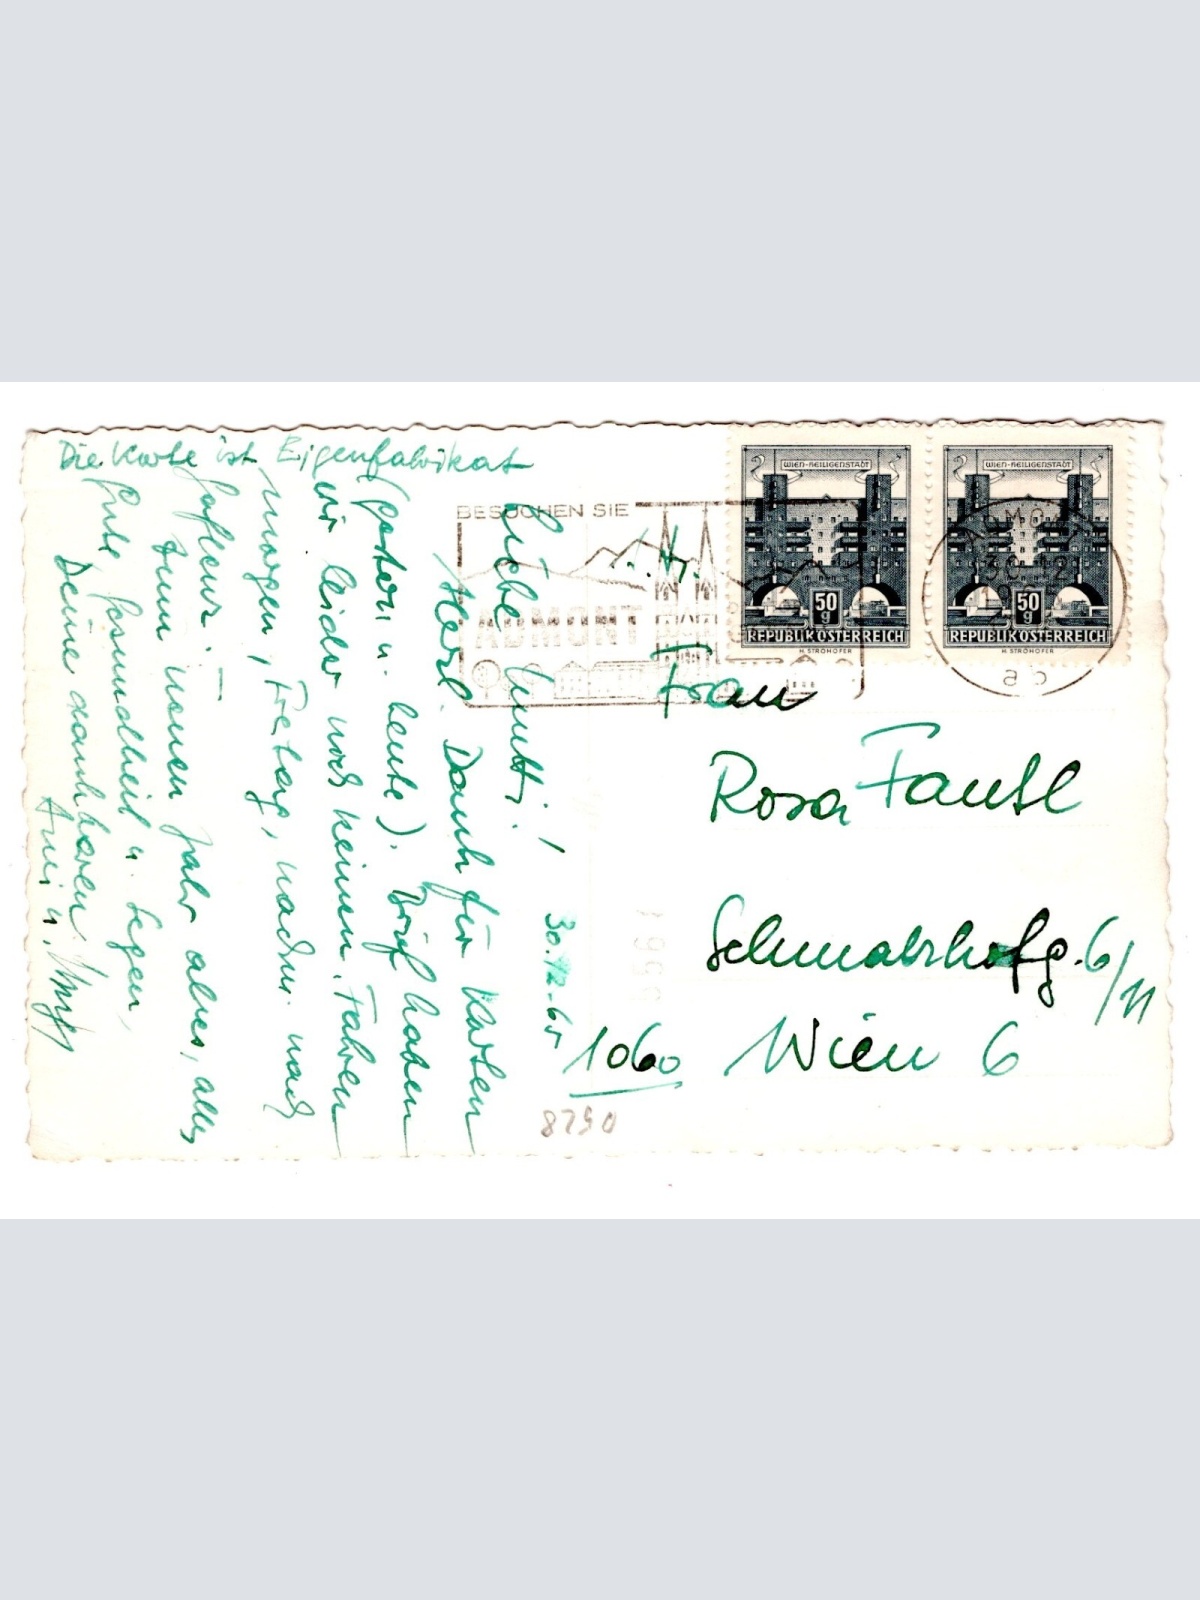 Die Karte ist Eigenfabrikat
30.12.65
Liebe Mutti!
Herzl. Dank für Karten
(gestern u. heute). Brief haben
wir leider noch keinen. Fahren
morgen, Freitag, nachm. nach
Zum neuen Jahr alles, alles
Gute, Gesundheit u. Segen,
Deine dankbaren
u.
BESUCHEN SIE
ADMONT
WIEN-HEILIGENSTADT
50 g
REPUBLIK ÖSTERREICH
H. STROHOFER
WIEN-HEILIGENSTADT
50 g
REPUBLIK ÖSTERREICH
H. STROHOFER
ADMONT
30.12
Frau
Rosa Fantl
Schmalzhofg. 6/11
1060 Wien 6
8290